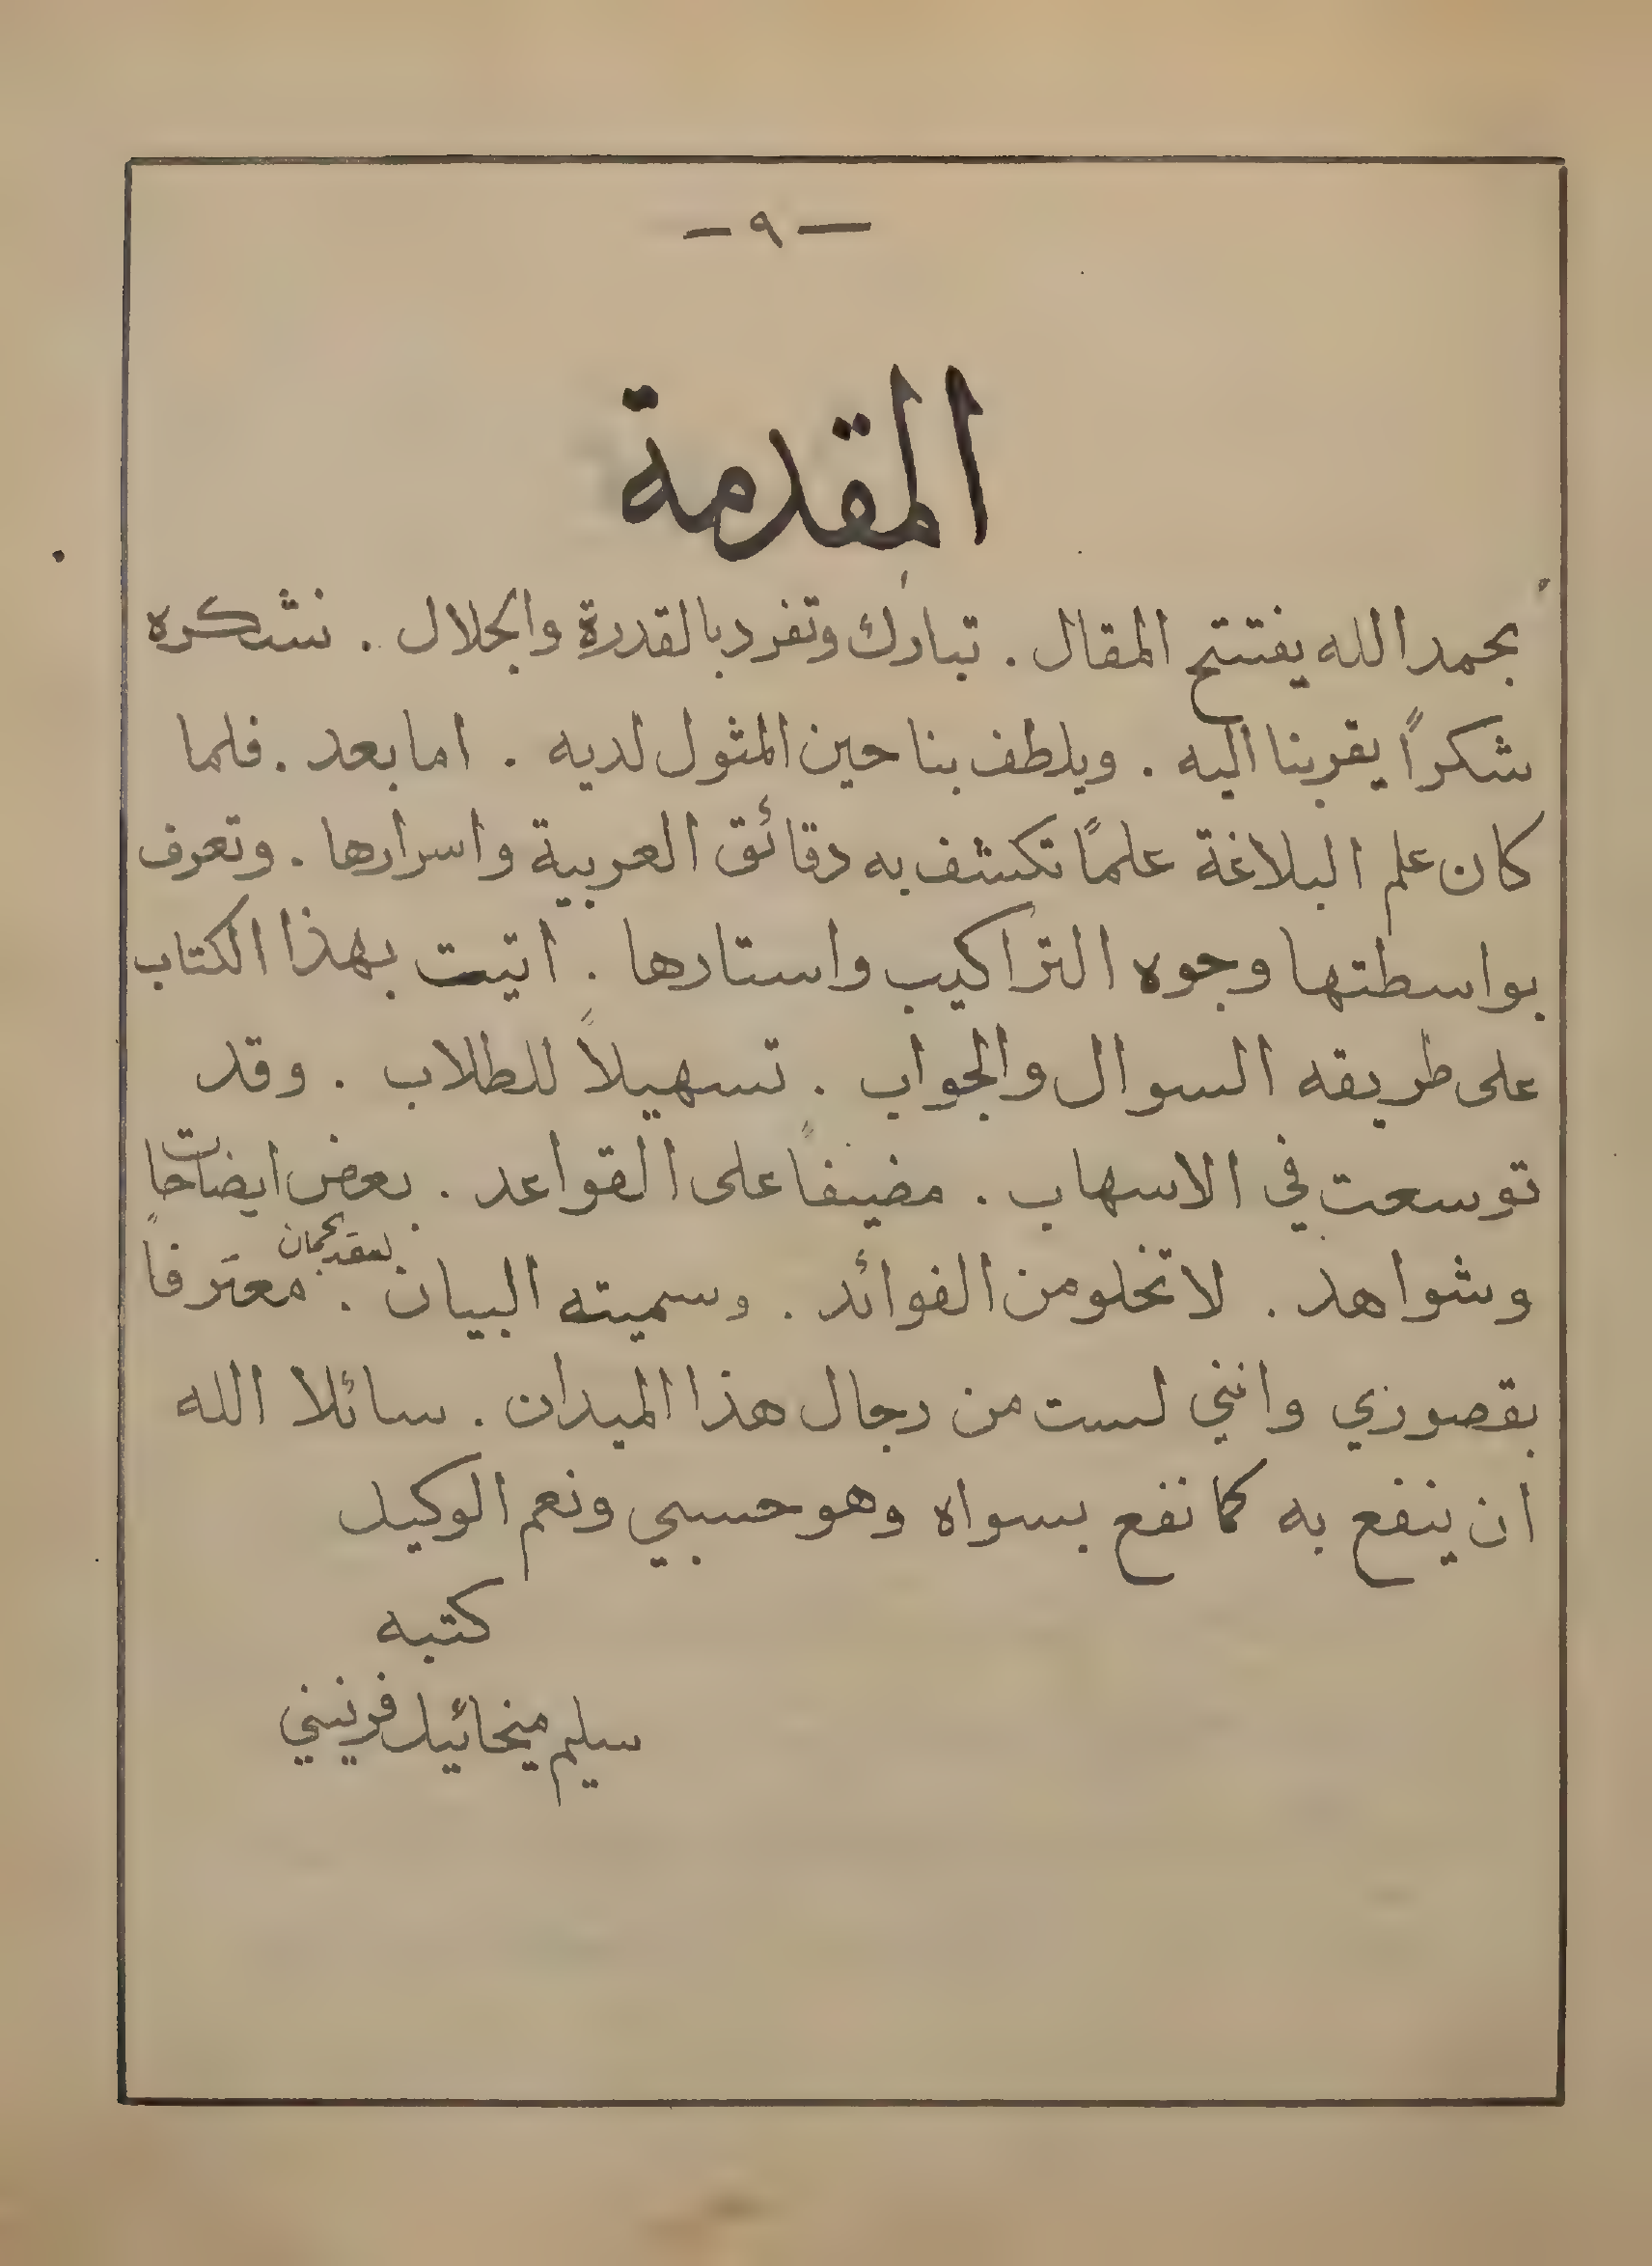 — ٩ —
المقدمة
بحمد الله يفتتح المقال . تبارك وتفرد بالقدرة والجلال . نشكره
شكراً يقربنا اليه . ويلطف بنا حين المثول لديه . اما بعد . فلما
كان علم البلاغة علمًا تكشف به دقائق العربية واسرارها . وتعرف
بواسطتها وجوه التراكيب واستارها . اتيت بهذا الكتاب
على طريقه السوال والجواب . تسهيلاً للطلاب . وقد
توسعت في الاسهاب . مضيفاً على القواعد . بعض ايضاحات
لعقد جمان
وشواهد . لا تخلو من الفوائد . وسميته البيان . معترفاً
بقصوري وانني لست من رجال هذا الميدان . سائلا الله
ان ينفع به كما نفع بسواه وهو حسبي ونعم الوكيل
كتبه
سليم ميخائيل فرنيني